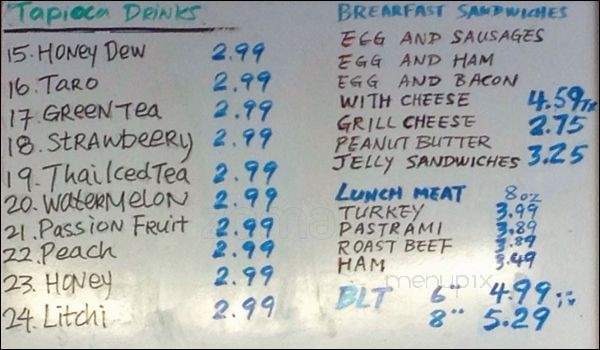 Tapioca Drinks
15. Honey Dew 2.99
16. Taro 2.99
17. Green Tea 2.99
18. Strawbeery 2.99
19. Thai Iced Tea 2.99
20. Watermelon 2.99
21. Passion Fruit 2.99
22. Peach 2.99
23. Honey 2.99
24. Litchi 2.99
BREAKFAST SANDWICHES
EGG AND SAUSAGES
EGG AND HAM
EGG AND BACON
WITH CHEESE 4.59
GRILL CHEESE 2.75
PEANUT BUTTER
JELLY SANDWICHES 3.25
LUNCH MEAT 8oz
TURKEY 3.99
PASTRAMI 3.89
ROAST BEEF 3.89
HAM 3.49
menupix
BLT 6" 4.99
8" 5.29